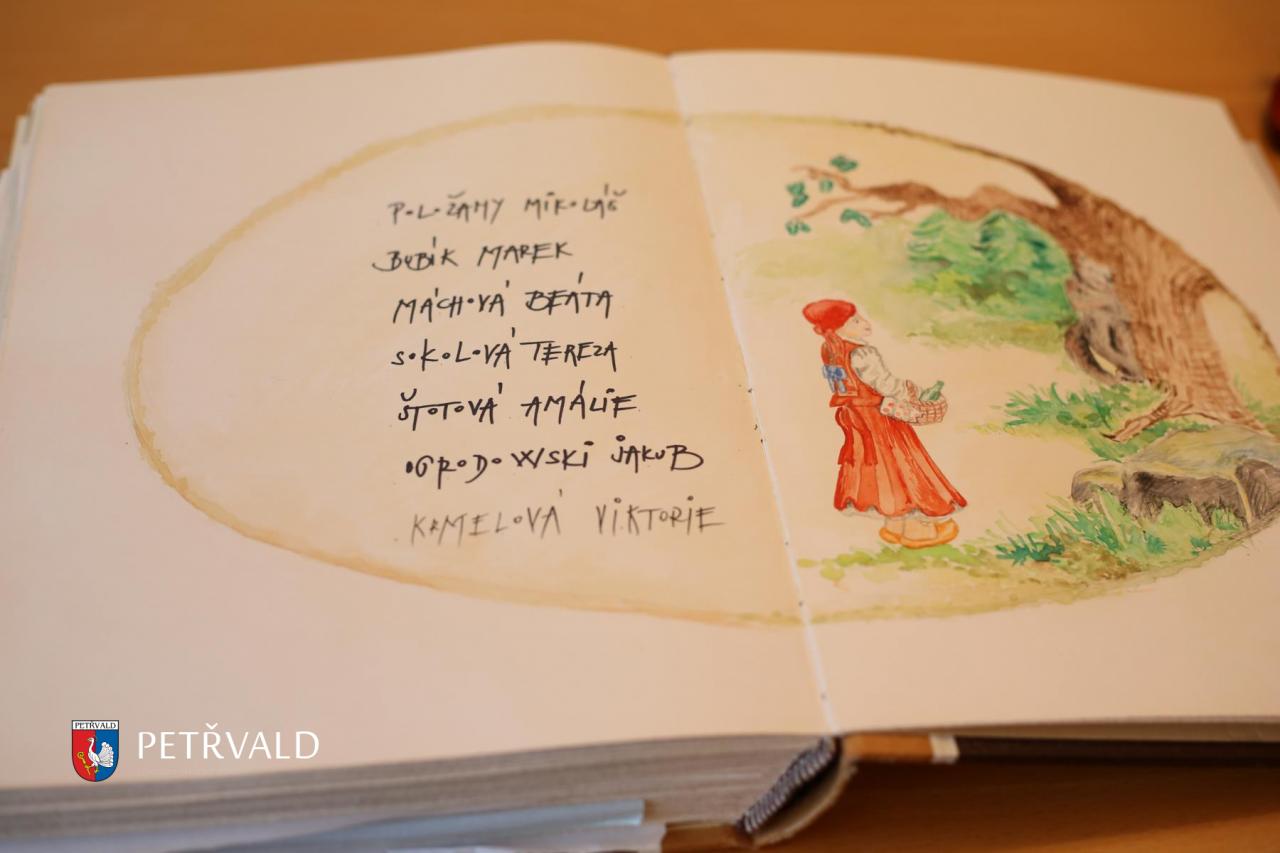 POLOŽÁNY MIKOLÁŠ
BUBÍK MAREK
MÁCHOVÁ BEÁTA
SOKOLOVÁ TEREZA
ŠTOTOVÁ AMÁLIE
OGRODOWSKI JAKUB
KAMELOVÁ VIKTORIE
PETŘVALD
PETŘVALD